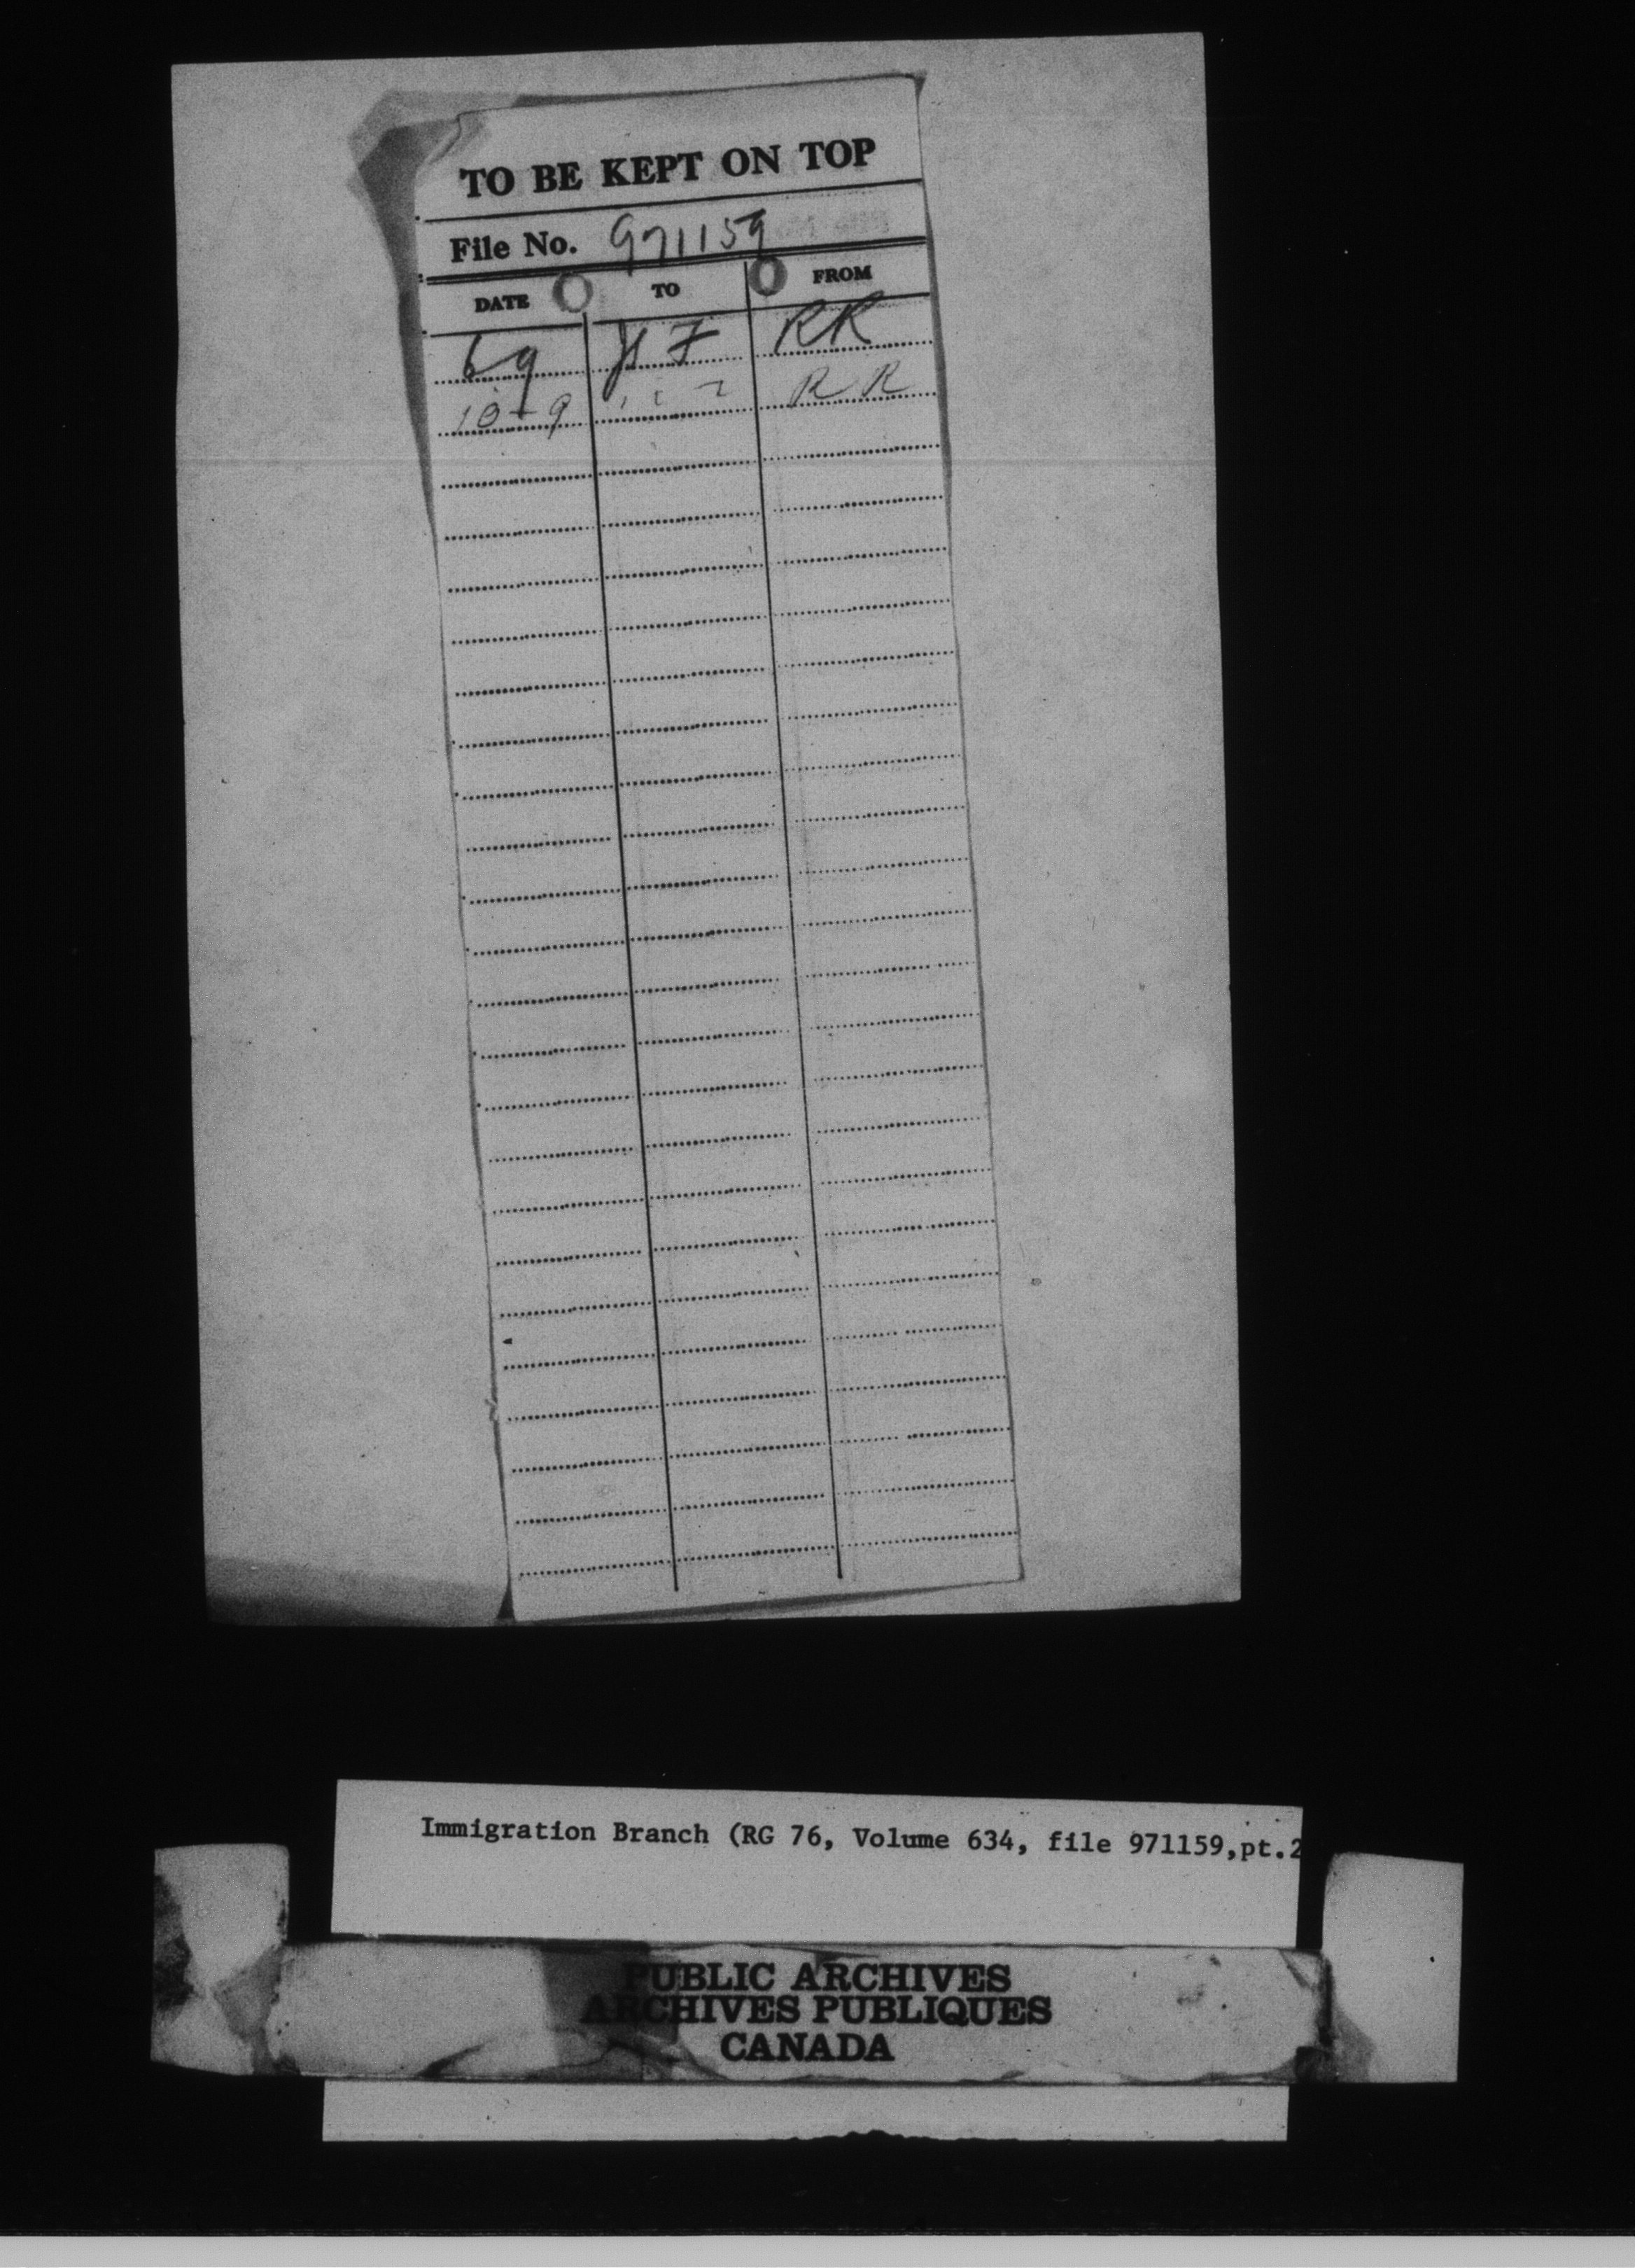 TO BE KEPT ON TOP
File No. 971159
DATE TO FROM
6 9 RR
10-9 RR
Immigration Branch (RG 76, Volume 634, file 971159,pt.2
PUBLIC ARCHIVES
ARCHIVES PUBLIQUES
CANADA